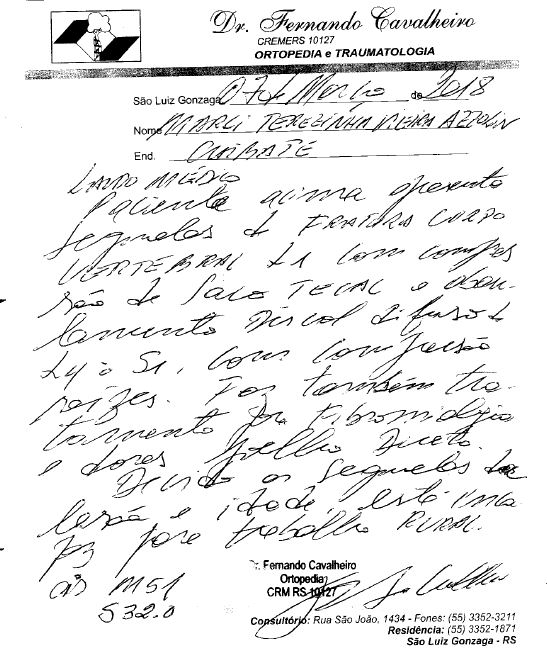 Dr. Fernando Cavalheiro
CREMERS 10127
ORTOPEDIA e TRAUMATOLOGIA
São Luiz Gonzaga, 07 de Março de 2018
Nome MARLI TEREZINHA VIEIRA AZZOLIN
End.
LAUDO MÉDICO
Paciente acima apresenta
sequelas de FRATURA CORPO
VERTEBRAL L1 com compres
são de Saco TECAL e abau-
lamento Discal difuso de
L4 a S1, com compressão
raízes. Faz também tra-
tamento por fibromialgia
e dores Joelho Direito.
Devido as sequelas da
lesão e idade, está inca
paz para trabalho RURAL.
CID M51
S32.0
Dr. Fernando Cavalheiro
Ortopedia
CRM RS 10127
Consultório: Rua São João, 1434 - Fones: (55) 3352-3211
Residência: (55) 3352-1871
São Luiz Gonzaga - RS